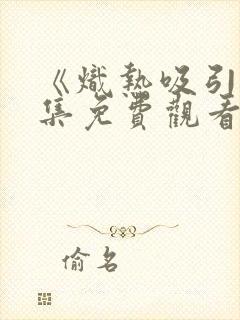 《熾熱吸引
集免費觀看
偷名